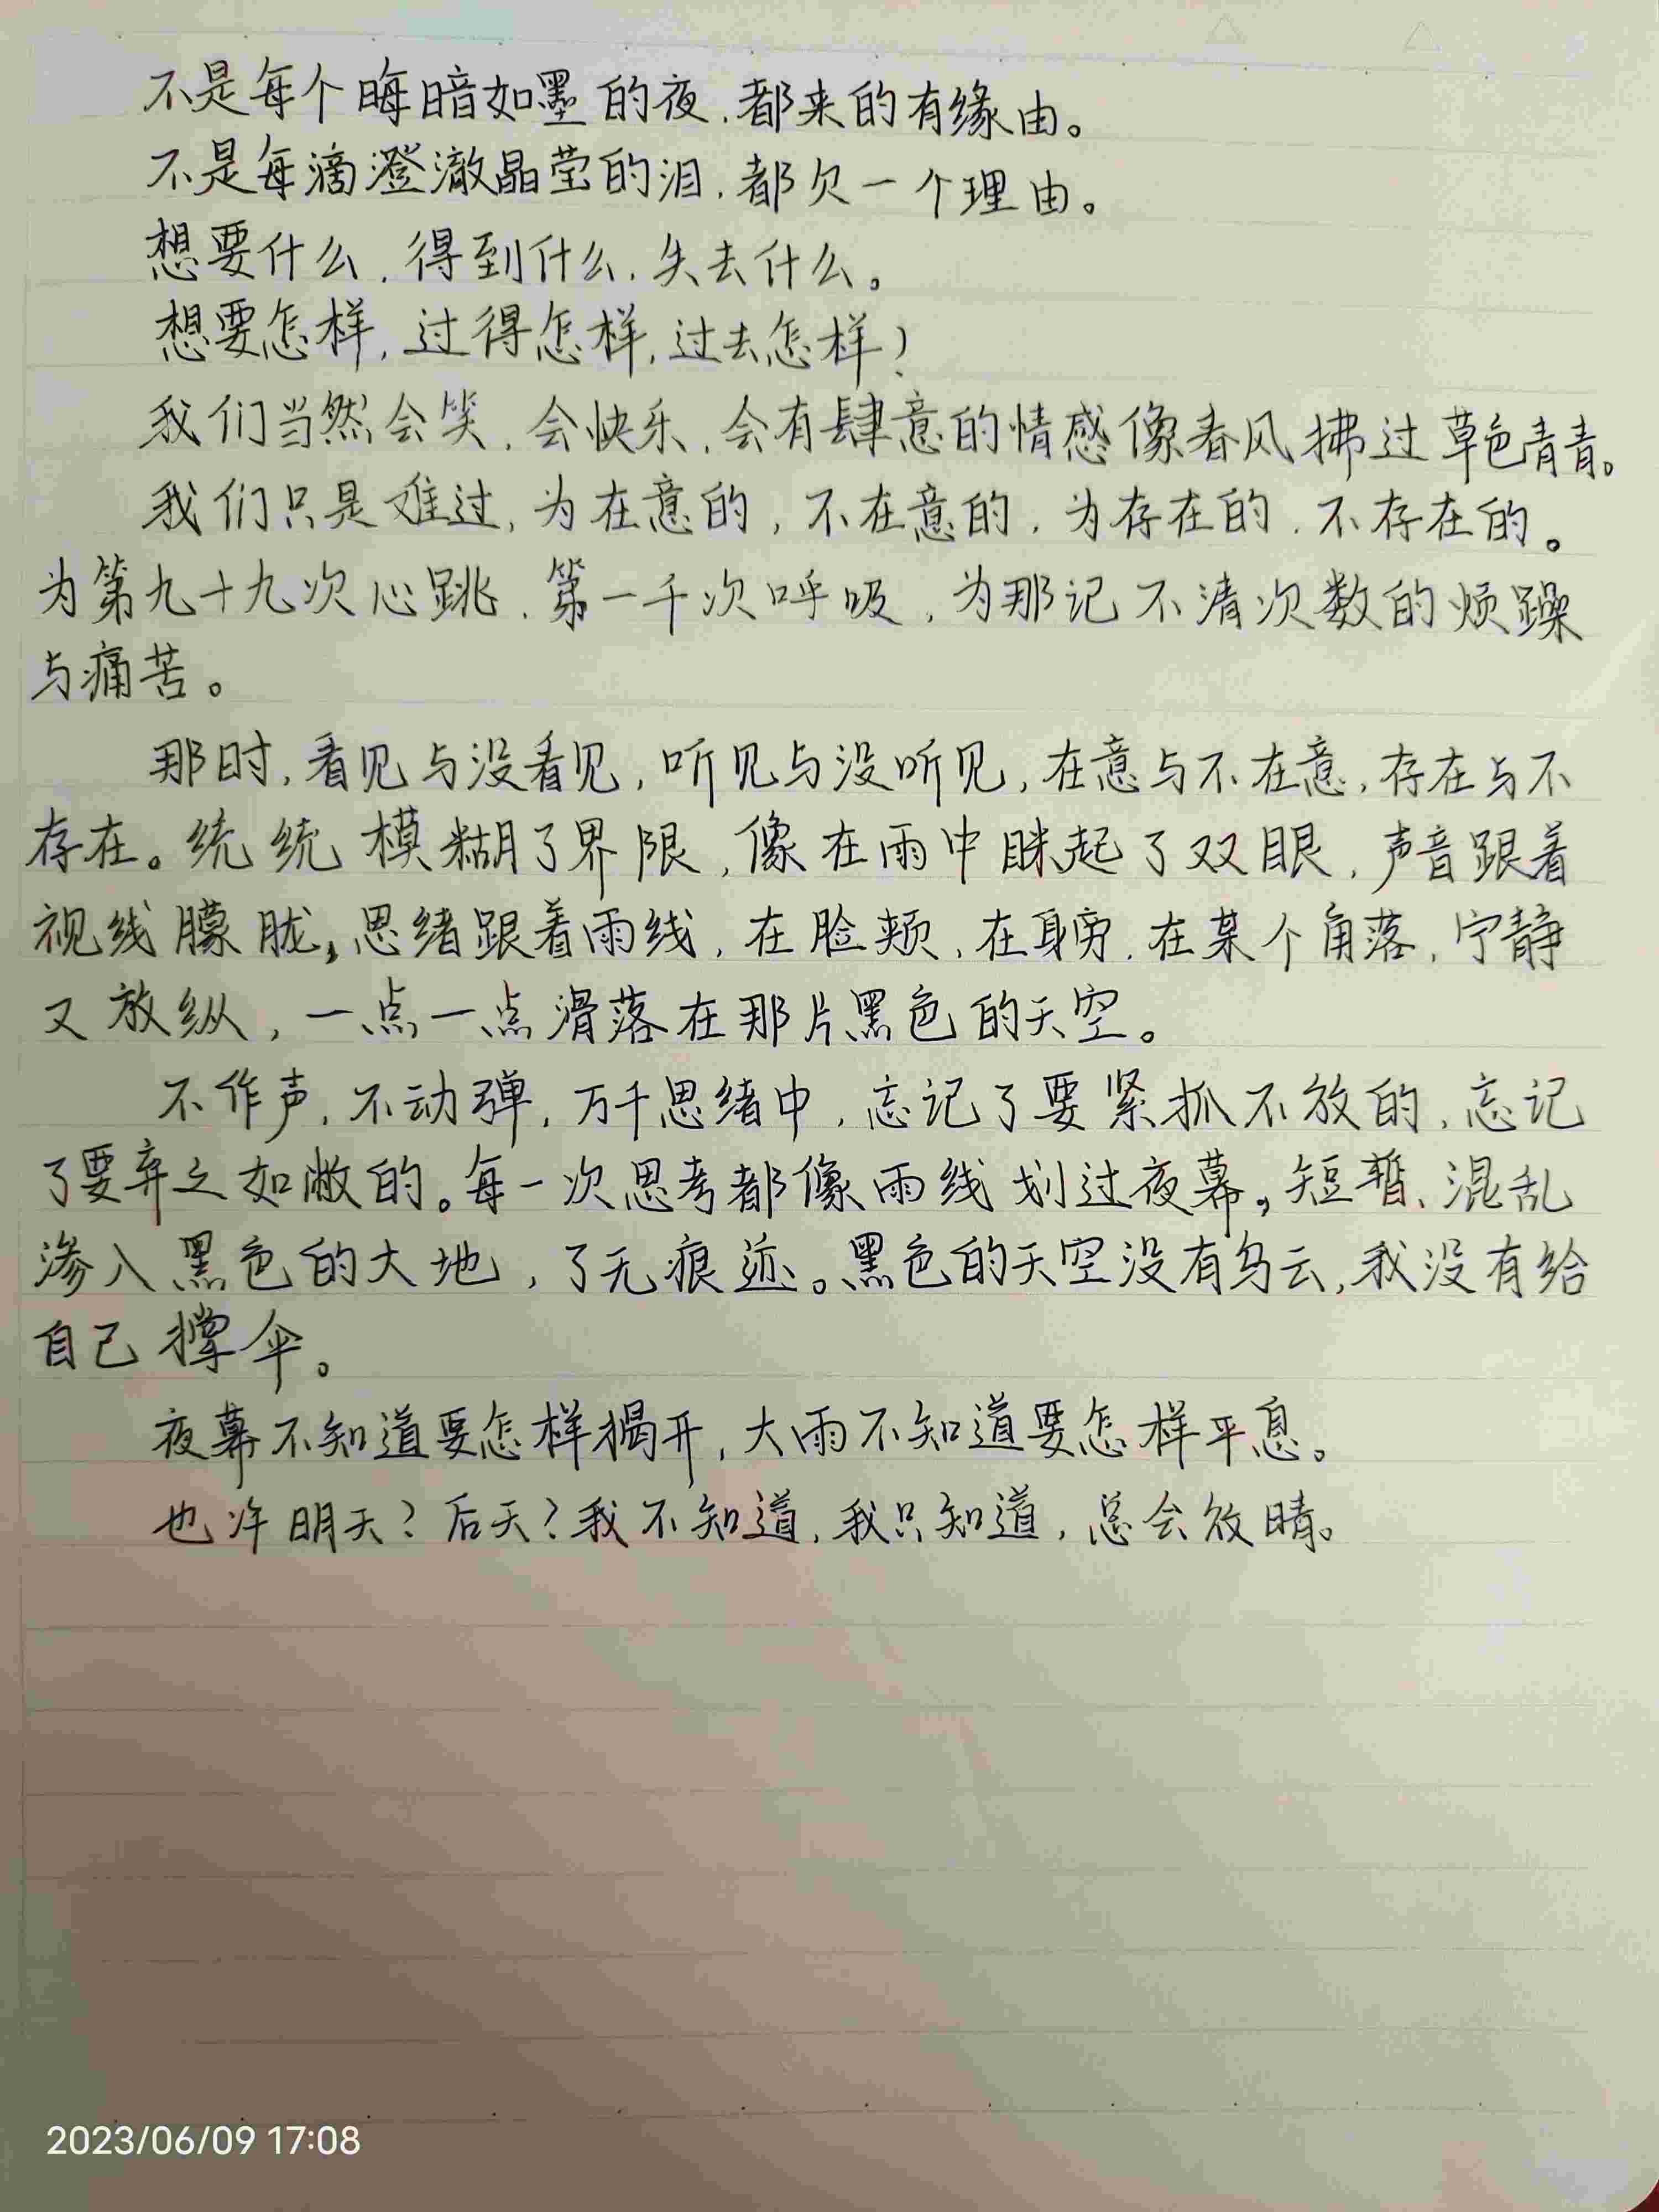 不是每个晦暗如墨的夜,都来的有缘由。
不是每滴澄澈晶莹的泪,都欠一个理由。
想要什么,得到什么,失去什么。
想要怎样,过得怎样,过去怎样?
我们当然会笑,会快乐,会有肆意的情感像春风拂过草色青青。
我们只是难过,为在意的,不在意的,为存在的,不存在的。
为第九十九次心跳,第一千次呼吸,为那记不清次数的烦躁
与痛苦。
那时,看见与没看见,听见与没听见,在意与不在意,存在与不
存在。统统模糊了界限,像在雨中眯起了双眼,声音跟着
视线朦胧,思绪跟着雨线,在脸颊,在身旁,在某个角落,宁静
又放纵,一点一点滑落在那片黑色的天空。
不作声,不动弹,万千思绪中,忘记了要紧抓不放的,忘记
了要弃之如敝的。每一次思考都像雨线划过夜幕,短暂、混乱
渗入黑色的大地,了无痕迹。黑色的天空没有乌云,我没有给
自己撑伞。
夜幕不知道要怎样揭开,大雨不知道要怎样平息。
也许明天?后天?我不知道,我只知道,总会放晴。
2023/06/09 17:08